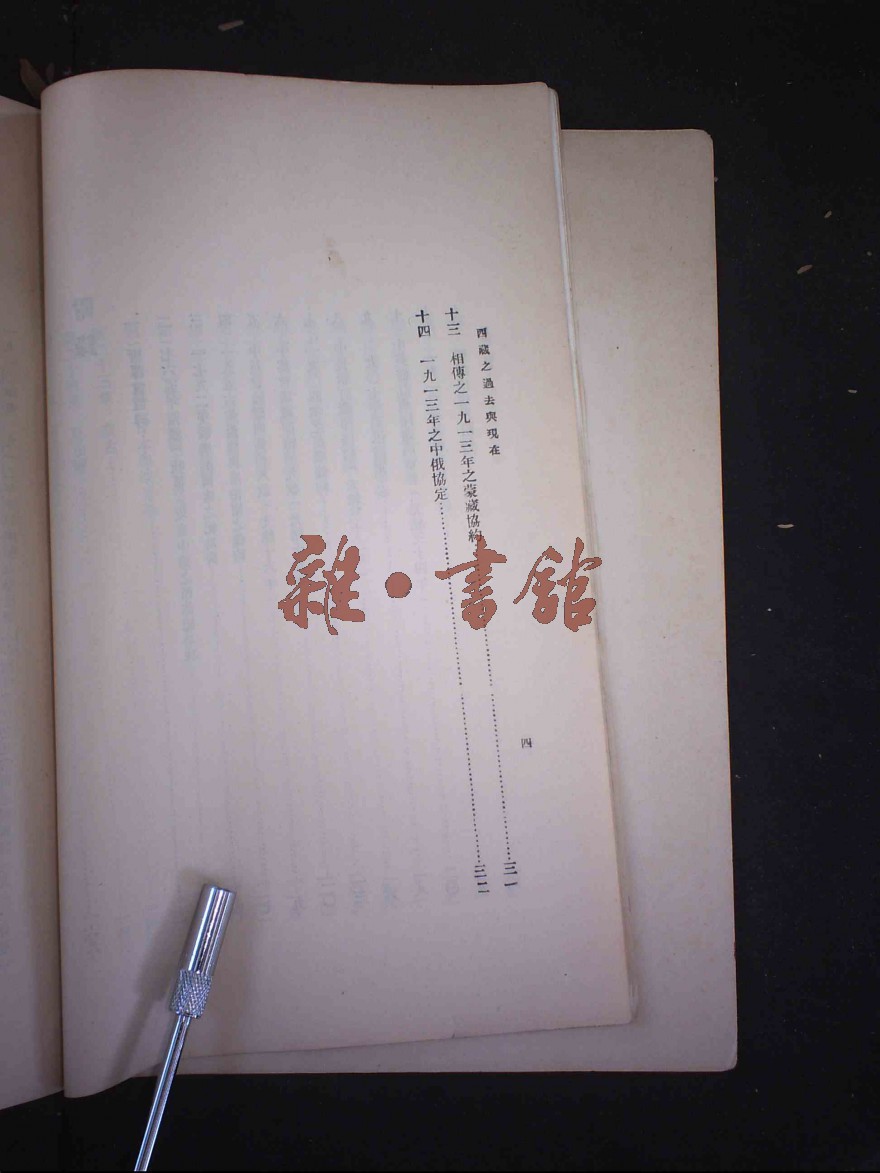 西藏之過去與現在
四
十三 相傳之一九一三年之蒙藏協約……三一
十四 一九一三年之中俄協定……三二
雜•書館